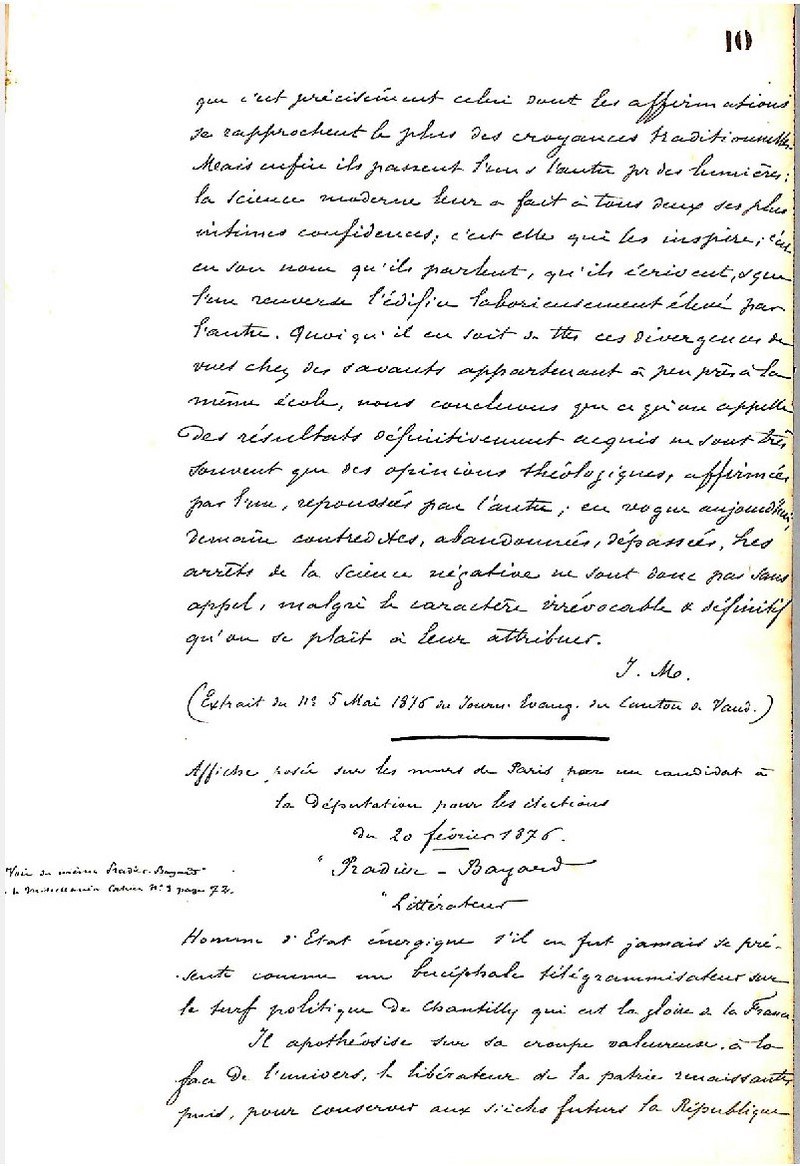 10
que c'est précisément celui dont les affirmations
se rapprochent le plus des croyances traditionnelles.
Mais enfin ils passent l'un & l'autre pr des lumières;
la science moderne leur a fait à tous deux ses plus
intimes confidences; c'est elle qui les inspire; c'est
en son nom qu'ils parlent, qu'ils écrivent, & que
l'un renverse l'édifice laborieusement élevé par
l'autre. Quoiqu'il en soit de ttes ces divergences de
vues chez des savants appartenant à peu près à la
même école, nous concluons que ce qu'on appelle
des résultats définitivement acquis ne sont très
souvent que des opinions théologiques, affirmées
par l'un, repoussées par l'autre; en vogue aujourd'hui,
demain contredites, abandonnées, dépassées. Les
arrêts de la science négative ne sont donc pas sans
appel, malgré le caractère irrévocable & définitif
qu'on se plaît à leur attribuer.
J. M.
(Extrait du No 5 Mai 1876 du Journ. Evang. du Canton de Vaud.)
Affiche posée sur les murs de Paris par un candidat à
la députation pour les élections
du 20 février 1876.
"Pradier - Bayard
"Littérateur
Voir du même Pradier-Bayard
le Miscellanéa Cahier No 3 page 72.
Homme d'Etat énergique s'il en fut jamais se pré-
sente comme un bucéphale télégrammisateur sur
le turf politique de Chantilly qui est la gloire de la France
Il apothéosise sur sa croupe valeureuse, à la
face de l'univers, le libérateur de la patrie renaissante
puis, pour conserver aux siècles futurs la République